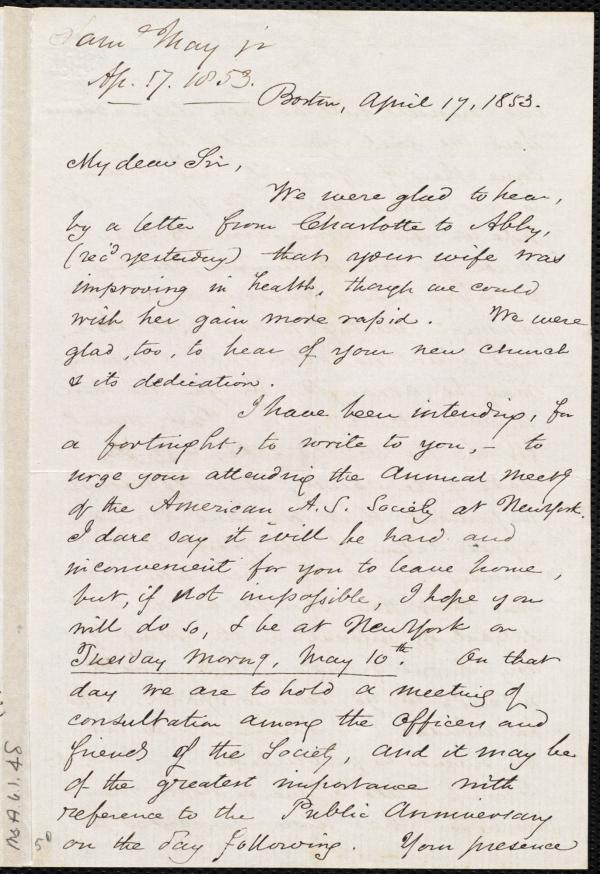 Sam May jr
Ap. 17. 1853.
Boston, April 17, 1853.
My dear Sir,
We were glad to hear,
by a letter from Charlotte to Abby,
(rec'd yesterday) that your wife was
improving in health, though we could
wish her gain more rapid. We were
glad, too, to hear of your new church
& its dedication.
I have been intending, for
a fortnight, to write to you, - to
urge your attending the Annual Meetg
of the American A.S. Society at NewYork.
I dare say it will be hard and
inconvenient for you to leave home,
but, if not impossible, I hope you
will do so, & be at NewYork on
Tuesday Morng, May 10th. On that
day we are to hold a meeting of
consultation among the officers and
friends of the Society, and it may be
of the greatest importance with
reference to the Public Anniversary
on the day following. Your presence
50